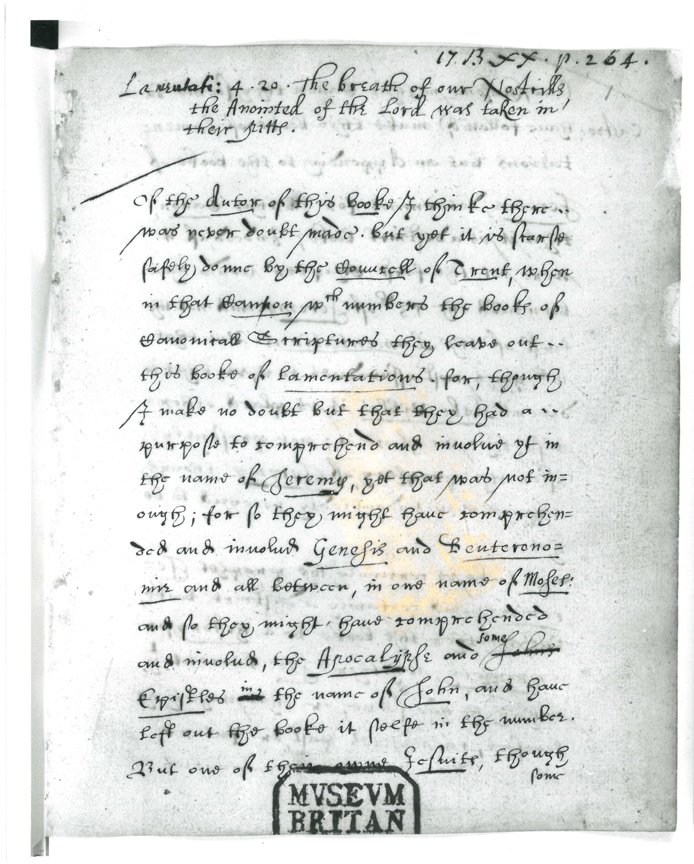 17. B. XX. p. 264.
Lamentati: 4. 20. The breath of our Nostrills
the Anointed of the Lord was taken in
their pitts.
Of the Autor of this booke I thinke there
was never doubt made. but yet it is scarse
safely donne by the Councell of Trent, when
in that Canon wch numbers the books of
Canonicall Scriptures they leave out
this booke of Lamentations. for, though
I make no doubt but that they had a
purpose to comprehend and involve yt in
the name of Jeremy, yet that was not in=
ough; for so they might have comprehen=
ded and involvd Genesis and Deuterono=
mie and all between, in one name of Moses:
and so they might have comprehended
some
and involvd, the Apocalypse and Johns
Epistles in the name of John, and have
left out the booke it selfe in the number.
But one of their owne Jesuits, though
some
MVSEVM
BRITAN